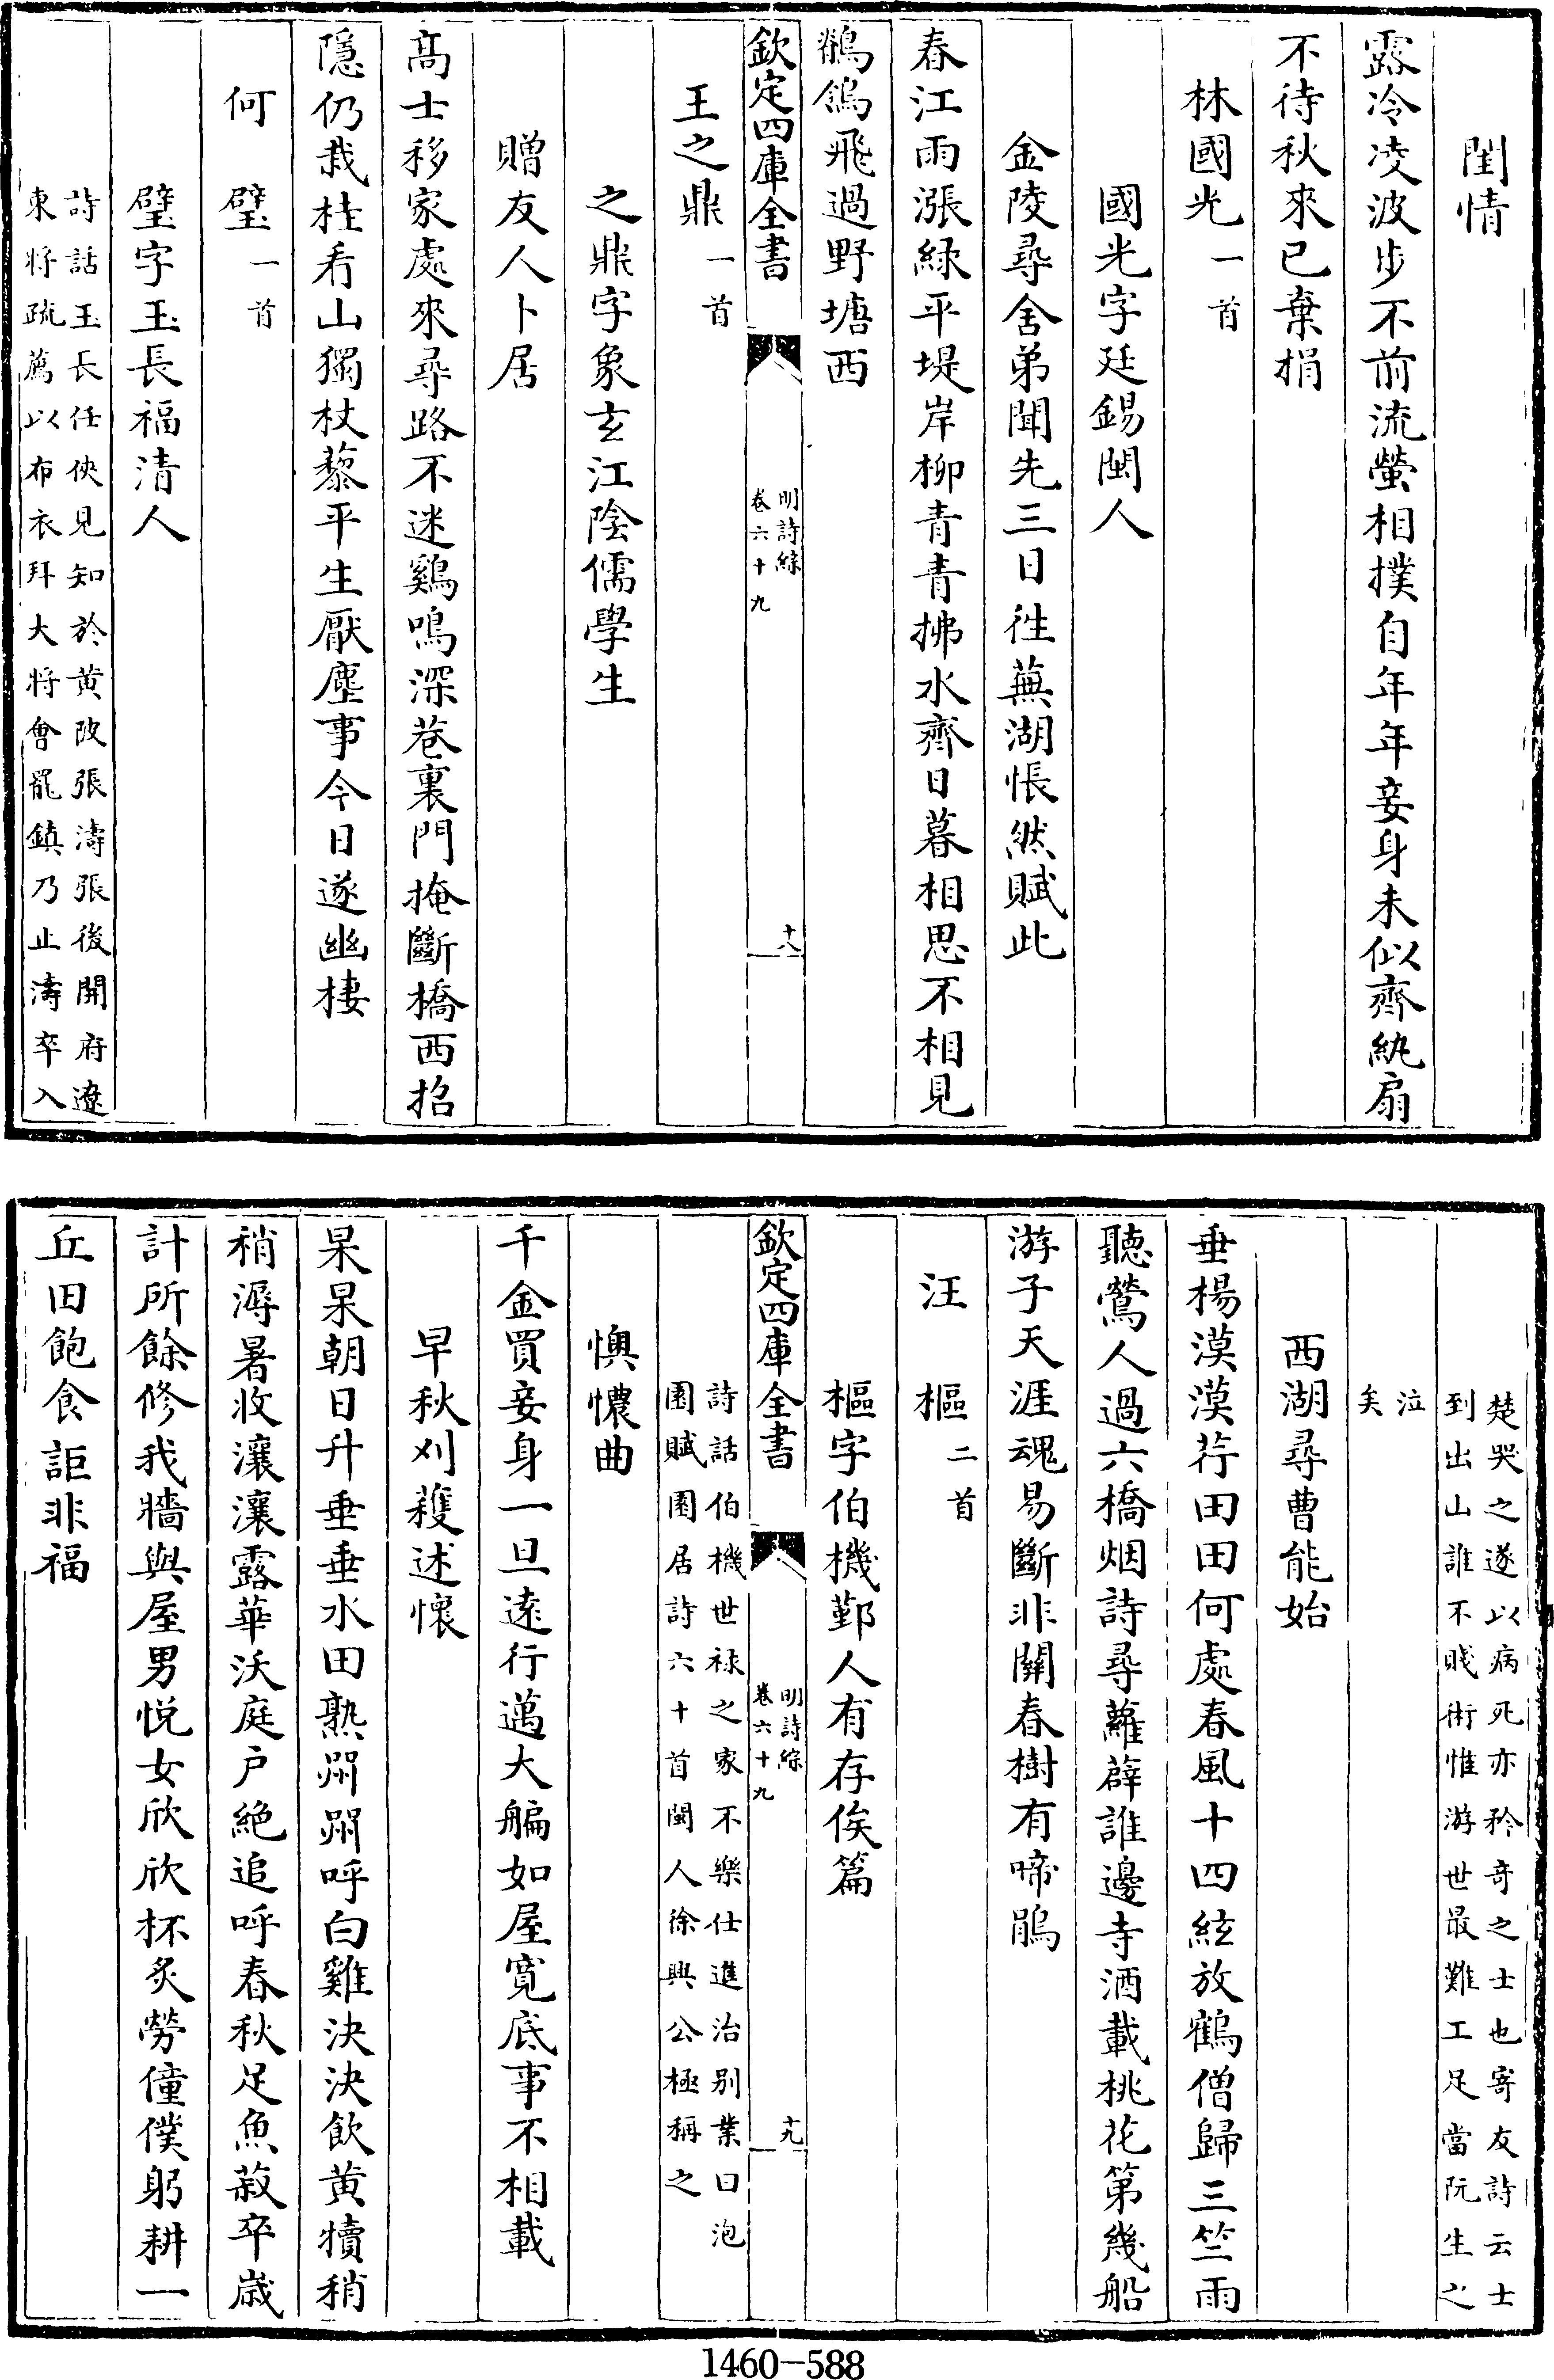 閨情
露冷凌波步不前流螢相撲自年年妾身未似齊紈扇
不待秋來已棄捐
林國光一首
國光字廷錫閩人
金陵尋舍弟聞先三日徃蕪湖悵然賦此
春江雨漲緑平堤岸柳青青拂水齊日暮相思不相見
鶺鴒飛過野塘西
欽定四庫全書
明詩綜
卷六十九
十八
王之鼎一首
之鼎字象玄江陰儒學生
贈友人卜居
髙士移家處來尋路不迷鷄鳴深巷裏門掩斷橋西招
隱仍栽桂看山獨杖藜平生厭塵事今日遂幽棲
何璧一首
璧字玉長福清人
詩話玉長任俠見知於黄陂張濤張後開府遼
東將疏薦以布衣拜大將會罷鎮乃止濤卒入
楚哭之遂以病死亦矜奇之士也寄友詩云士
到出山誰不賤術惟游世最難工足當阮生之
泣
矣
西湖尋曹能始
垂楊漠漠荇田田何處春風十四絃放鶴僧歸三竺雨
聽鶯人過六橋烟詩尋蘿薜誰邊寺酒載桃花第幾船
游子天涯魂易斷非關春樹有啼鵑
汪樞二首
樞字伯機鄞人有存俟篇
欽定四庫全書
明詩綜
卷六十九
十九
詩話伯機世禄之家不樂仕進治别業曰泡
園賦園居詩六十首閩人徐興公極稱之
懊憹曲
千金買妾身一旦逺行邁大艑如屋寛底事不相載
早秋刈穫述懷
杲杲朝日升垂垂水田熟喌喌呼白雞決決飲黄犢稍
稍溽暑收瀼瀼露華沃庭户絶追呼春秋足魚菽卒嵗
計所餘修我牆與屋男悦女欣欣杯炙勞僮僕躬耕一
丘田飽食詎非福
1460-588